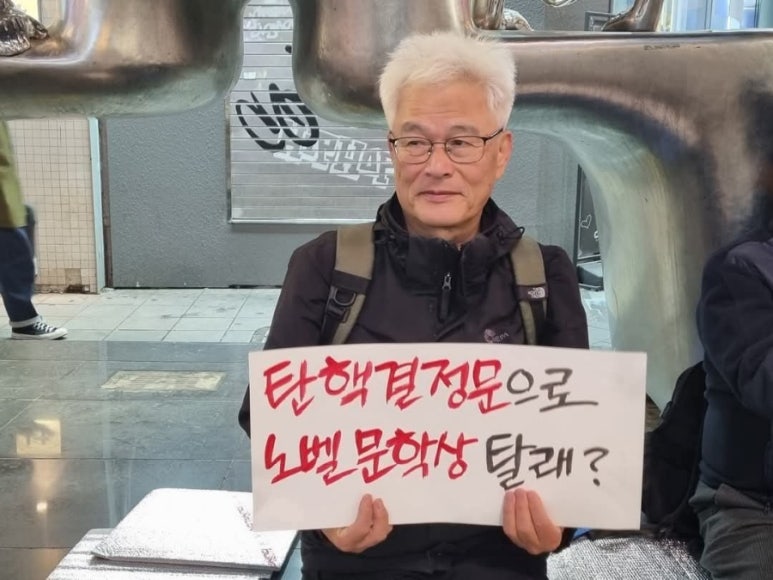 탄핵결정문으로
노벨 문학상 탈래?